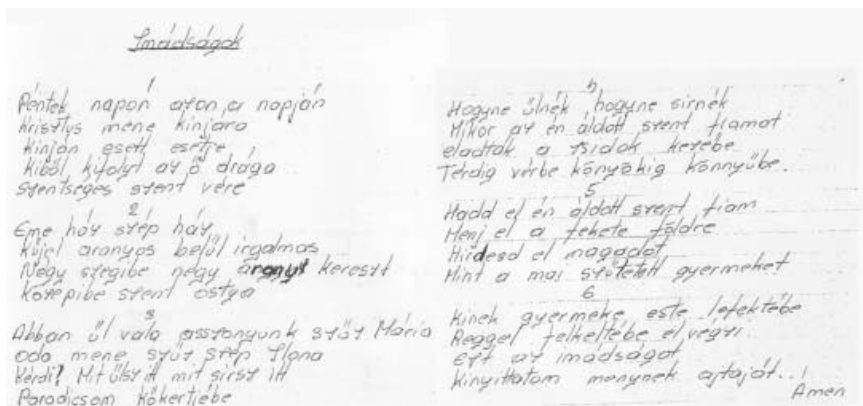 Imádságok
1
Péntek napon azon a napján
Krisztus mene kinjára
Kinján esett esetje
Kiből kifolyt az ő drága
szentséges szent vére
2
Eme ház szép ház
Kűjel aranyos belűl irgalmas
Négy szegibe négy aranyt kereszt
Közepibe szent ostya
3
Abban űl vala asszonyunk szűz Mária
oda mene szűz szép Ilona
Kérdi? Mit űlsz itt mit sirsz itt
Paradicsom kőkertjébe
4
Hogyne űlnék hogyne sirnék
Mikor az én áldott szent fiamat
eladták a zsidok kezébe
Térdig vérbe könyökig könnyűbe.
5
Hadd el én áldott szent fiam
Menj el a fekete földre
Hirdesd el magadot
Mint a mai született gyermeket
6
Kinek gyermeke este lefektébe
Reggel felkeltébe elvégzi
Ezt az imádságat
Kinyittatom menynek ajtaját..!
Amen